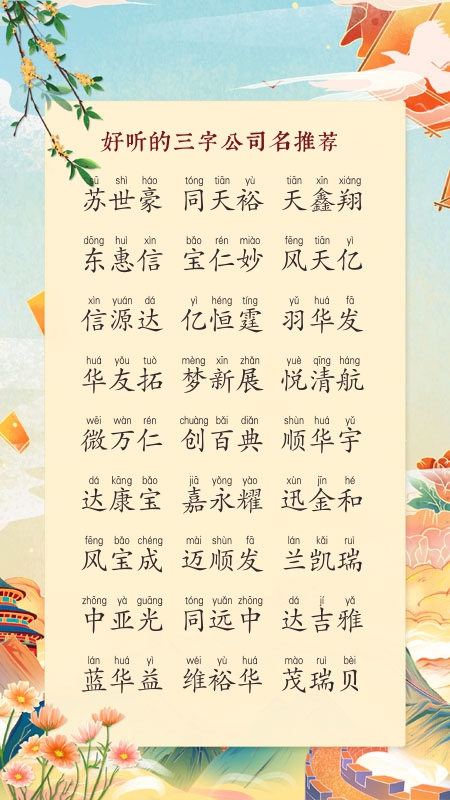 好听的三字公司名推荐
sū shì háo tóng tiān yù tiān xīn xiáng
苏世豪 同天裕 天鑫翔
dōng huì xìn bǎo rén miào fēng tiān yì
东惠信 宝仁妙 风天亿
xìn yuán dá yì héng tíng yǔ huá fā
信源达 亿恒霆 羽华发
huá yǒu tuò mèng xīn zhǎn yuè qīng háng
华友拓 梦新展 悦清航
wēi wàn rén chuàng bǎi diǎn shùn huá yǔ
微万仁 创百典 顺华宇
dá kāng bǎo jiā yǒng yào xùn jīn hé
达康宝 嘉永耀 迅金和
fēng bǎo chéng mài shùn fā lán kǎi ruì
风宝成 迈顺发 兰凯瑞
zhōng yà guāng tóng yuǎn zhōng dá jí yǎ
中亚光 同远中 达吉雅
lán huá yì wéi yù huá mào ruì bèi
蓝华益 维裕华 茂瑞贝